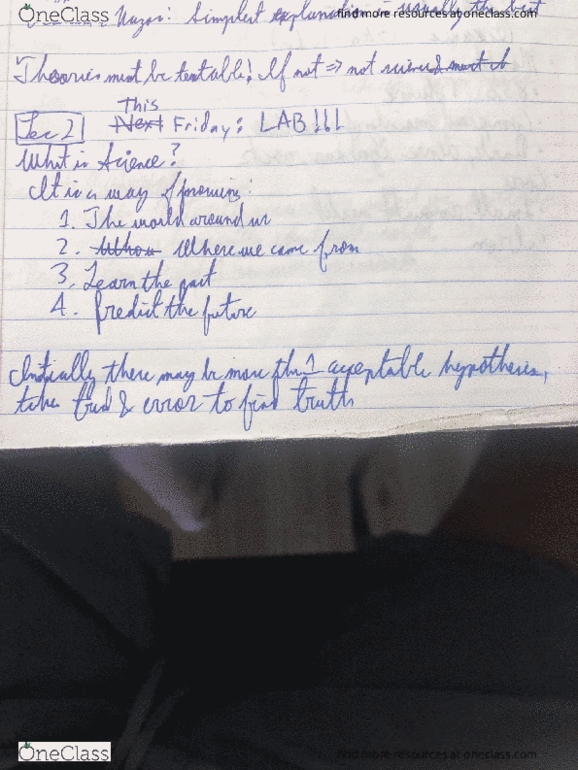 OneClass find more resources at oneclass.com
Razor: Simplest explanation is usually the best
Theories must be testable! If not => not science
This
Lec 2 Next Friday: LAB!!!
What is Science?
It is a way of knowing:
1. The world around us
2. Where we came from
3. Learn the past
4. Predict the future
Initially there may be more than 1 acceptable hypothesis,
take trial & error to find truth
OneClass find more resources at oneclass.com